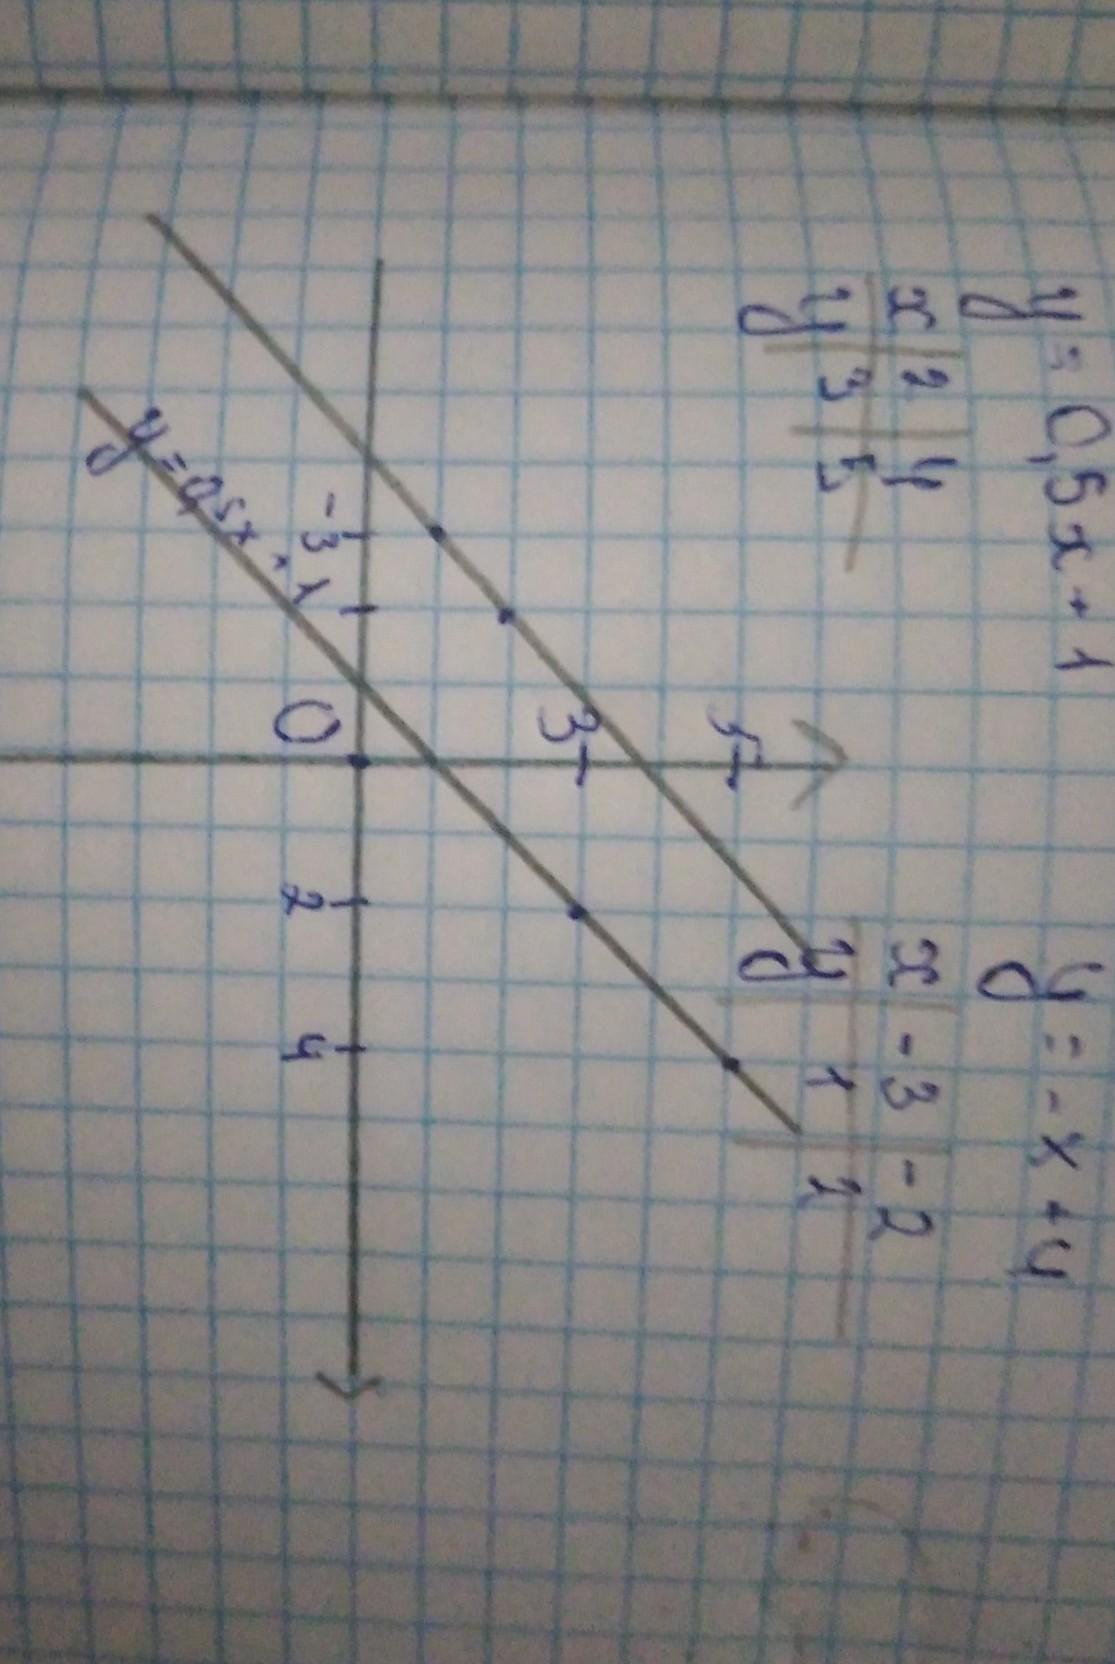 y = 0,5x + 1
x 2 4
y 3 5
y = -x + 4
x -3 -2
y 1 2
5
3
-3
0
2
4